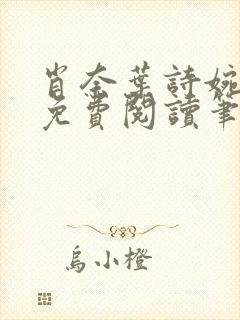 肖奈葉詩婉
免費閱讀筆
烏小橙